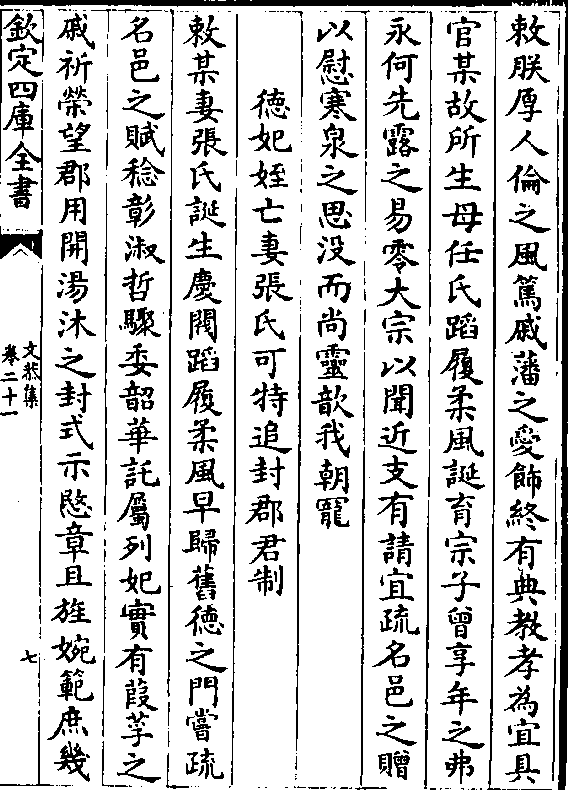 敕朕厚人倫之風篤戚藩之愛飾終有典教孝為宜具
官某故所生母任氏蹈履柔風誕育宗子曾享年之弗
永何先露之易零大宗以聞近支有請宜疏名邑之贈
以慰寒泉之思没而尚靈歆我朝寵
德妃姪亡妻張氏可特追封郡君制
敕某妻張氏誕生慶閥蹈履柔風早歸舊徳之門嘗疏
名邑之賦稔彰淑哲驟委韶華託屬列妃實有葭莩之
戚祈榮望郡用開湯沐之封式示愍章且旌婉範庶幾
欽定四庫全書
文恭集
卷二十一
七